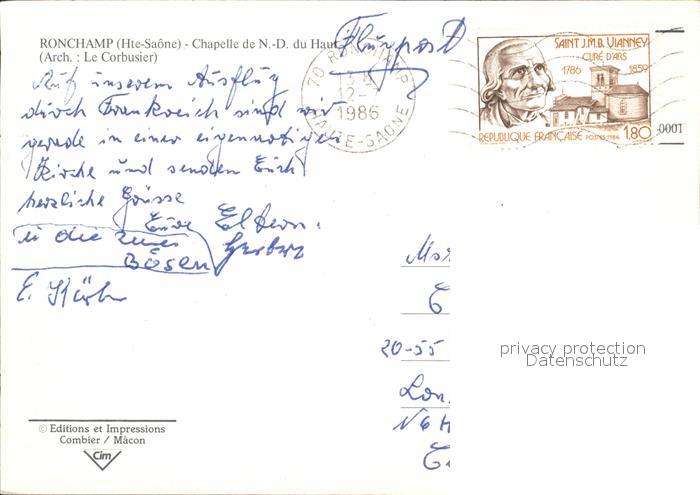 RONCHAMP (Hte-Saône) - Chapelle de N.-D. du Haut
(Arch. : Le Corbusier)
Flugpost
70 RONCHAMP
12-
1986
HAUTE-SAONE
SAINT J.M.B. VIANNEY
CURÉ D'ARS
1786 1859
REPUBLIQUE FRANÇAISE POSTES 1986 1,80
0001
Auf unserem Ausflug
durch Frankreich sind wir
gerade in einer eigenartigen
Kirche und senden Euch
herzliche Grüsse
Eure Eltern.
die
Bösen
E.
20-55
Lon.
N6H
privacy protection
Datenschutz
© Editions et Impressions
Combier / Mâcon
Cim